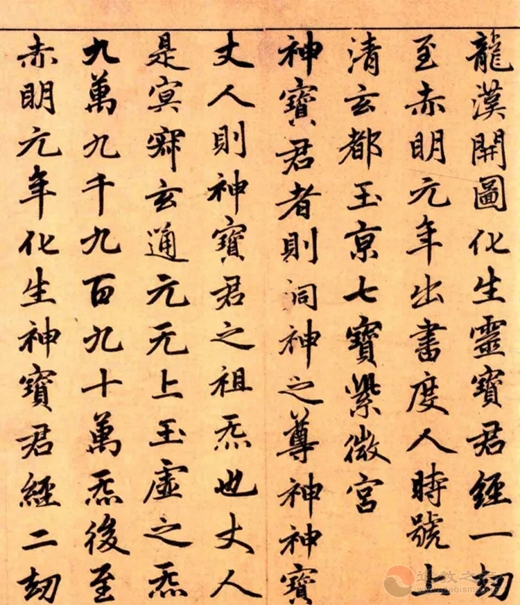 龍漢開圖化生靈寶君經一劫
至赤明元年出書度人時號上
清玄都玉京七寶紫微宮
神寶君者則洞神之尊神神寶
丈人則神寶君之祖炁也丈人
是寘寂玄通元无上玉虛之炁
九萬九千九百九十萬炁後至
赤明元年化生神寶君經二劫